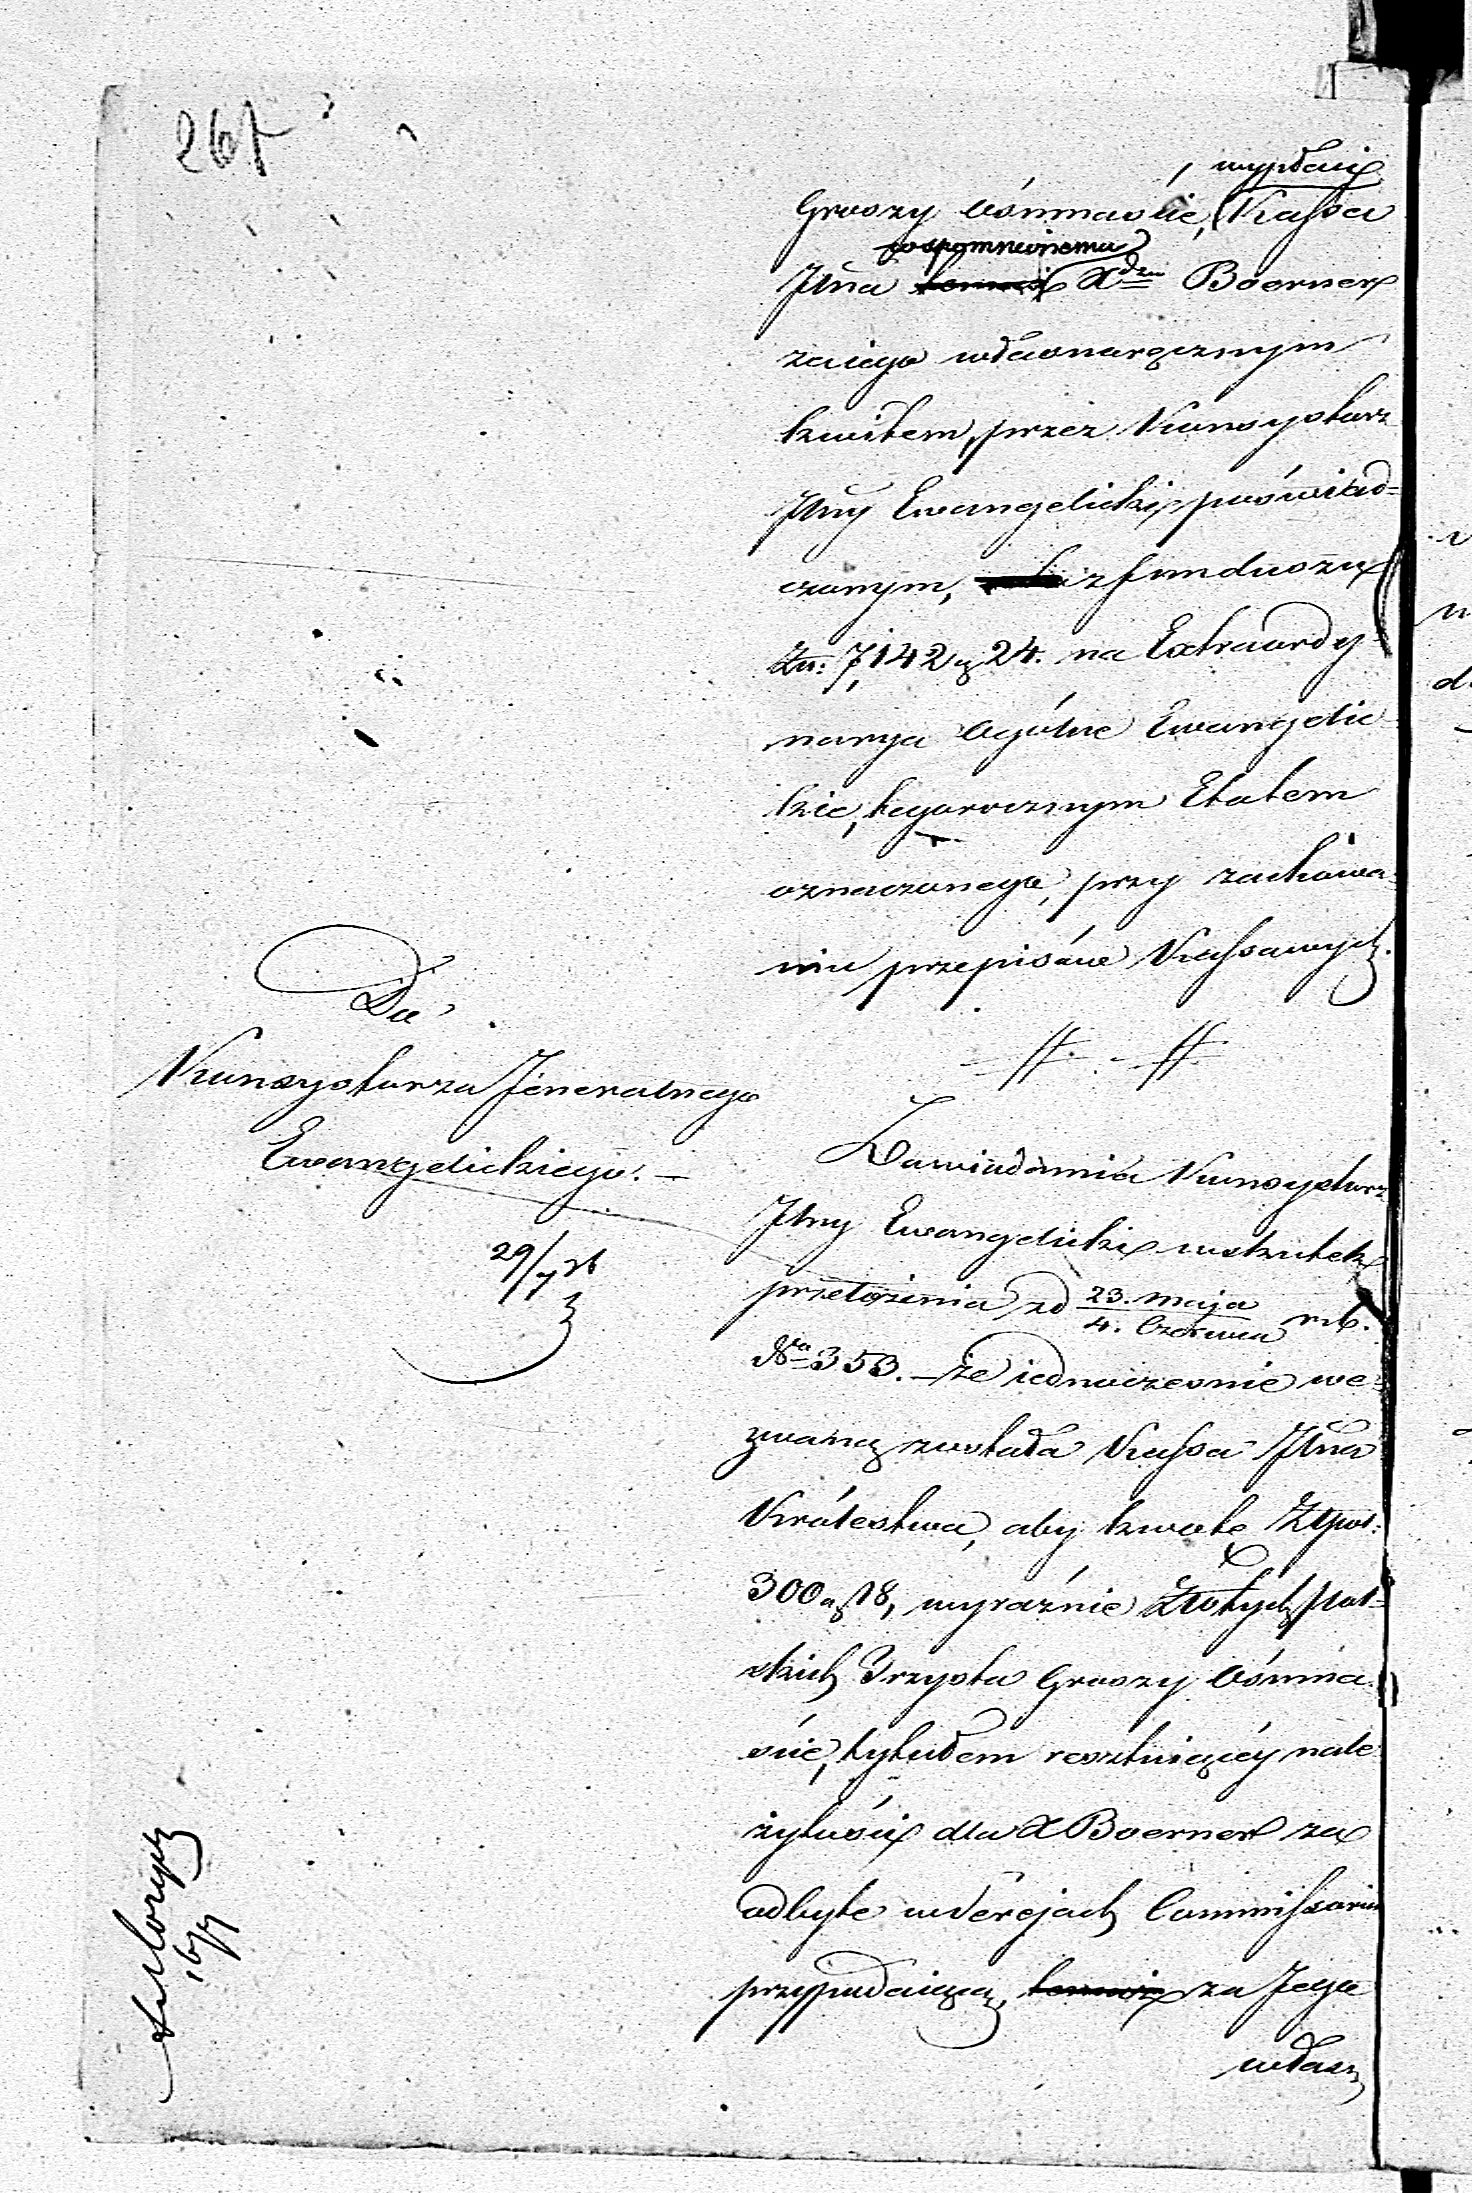 267
wypłaci
Groszy ośmnaście, Kassa
wspomnionemu
Jlna temuż Xdzu Boerner
za iego własnoręcznym
kwitem, przez Konsystorz
Jlny Ewangelicki poświad=
czonym, z funduszu
Złp: 7,142 g 24. na Extraordy=
narya ogólne Ewangelic
kie, tegorocznym Etatem
oznaczonego, przy zachowa=
niu przepisów Kassowych.
Do
Konsystorza Jeneralnego
Ewangelickiego. —
29/7
Zawiadamia Konsystorz
Jlny Ewangelicki wskutek
przełożenia od 23. Maja / 4. Czerwca r. b.
No 353. — że iednocześnie we=
zwaną została Kassa Jlna
Królestwa, aby kwotę Złpol:
300 g 18, wyraźnie Złotych Pol=
skich Trzysta Groszy ośmna=
ście, tytułem resztuiącéy nale
żytości dla X Boerner za
odbyte w Jeżejach Commissoria
przypadaiącą, temuż za Jego
własn